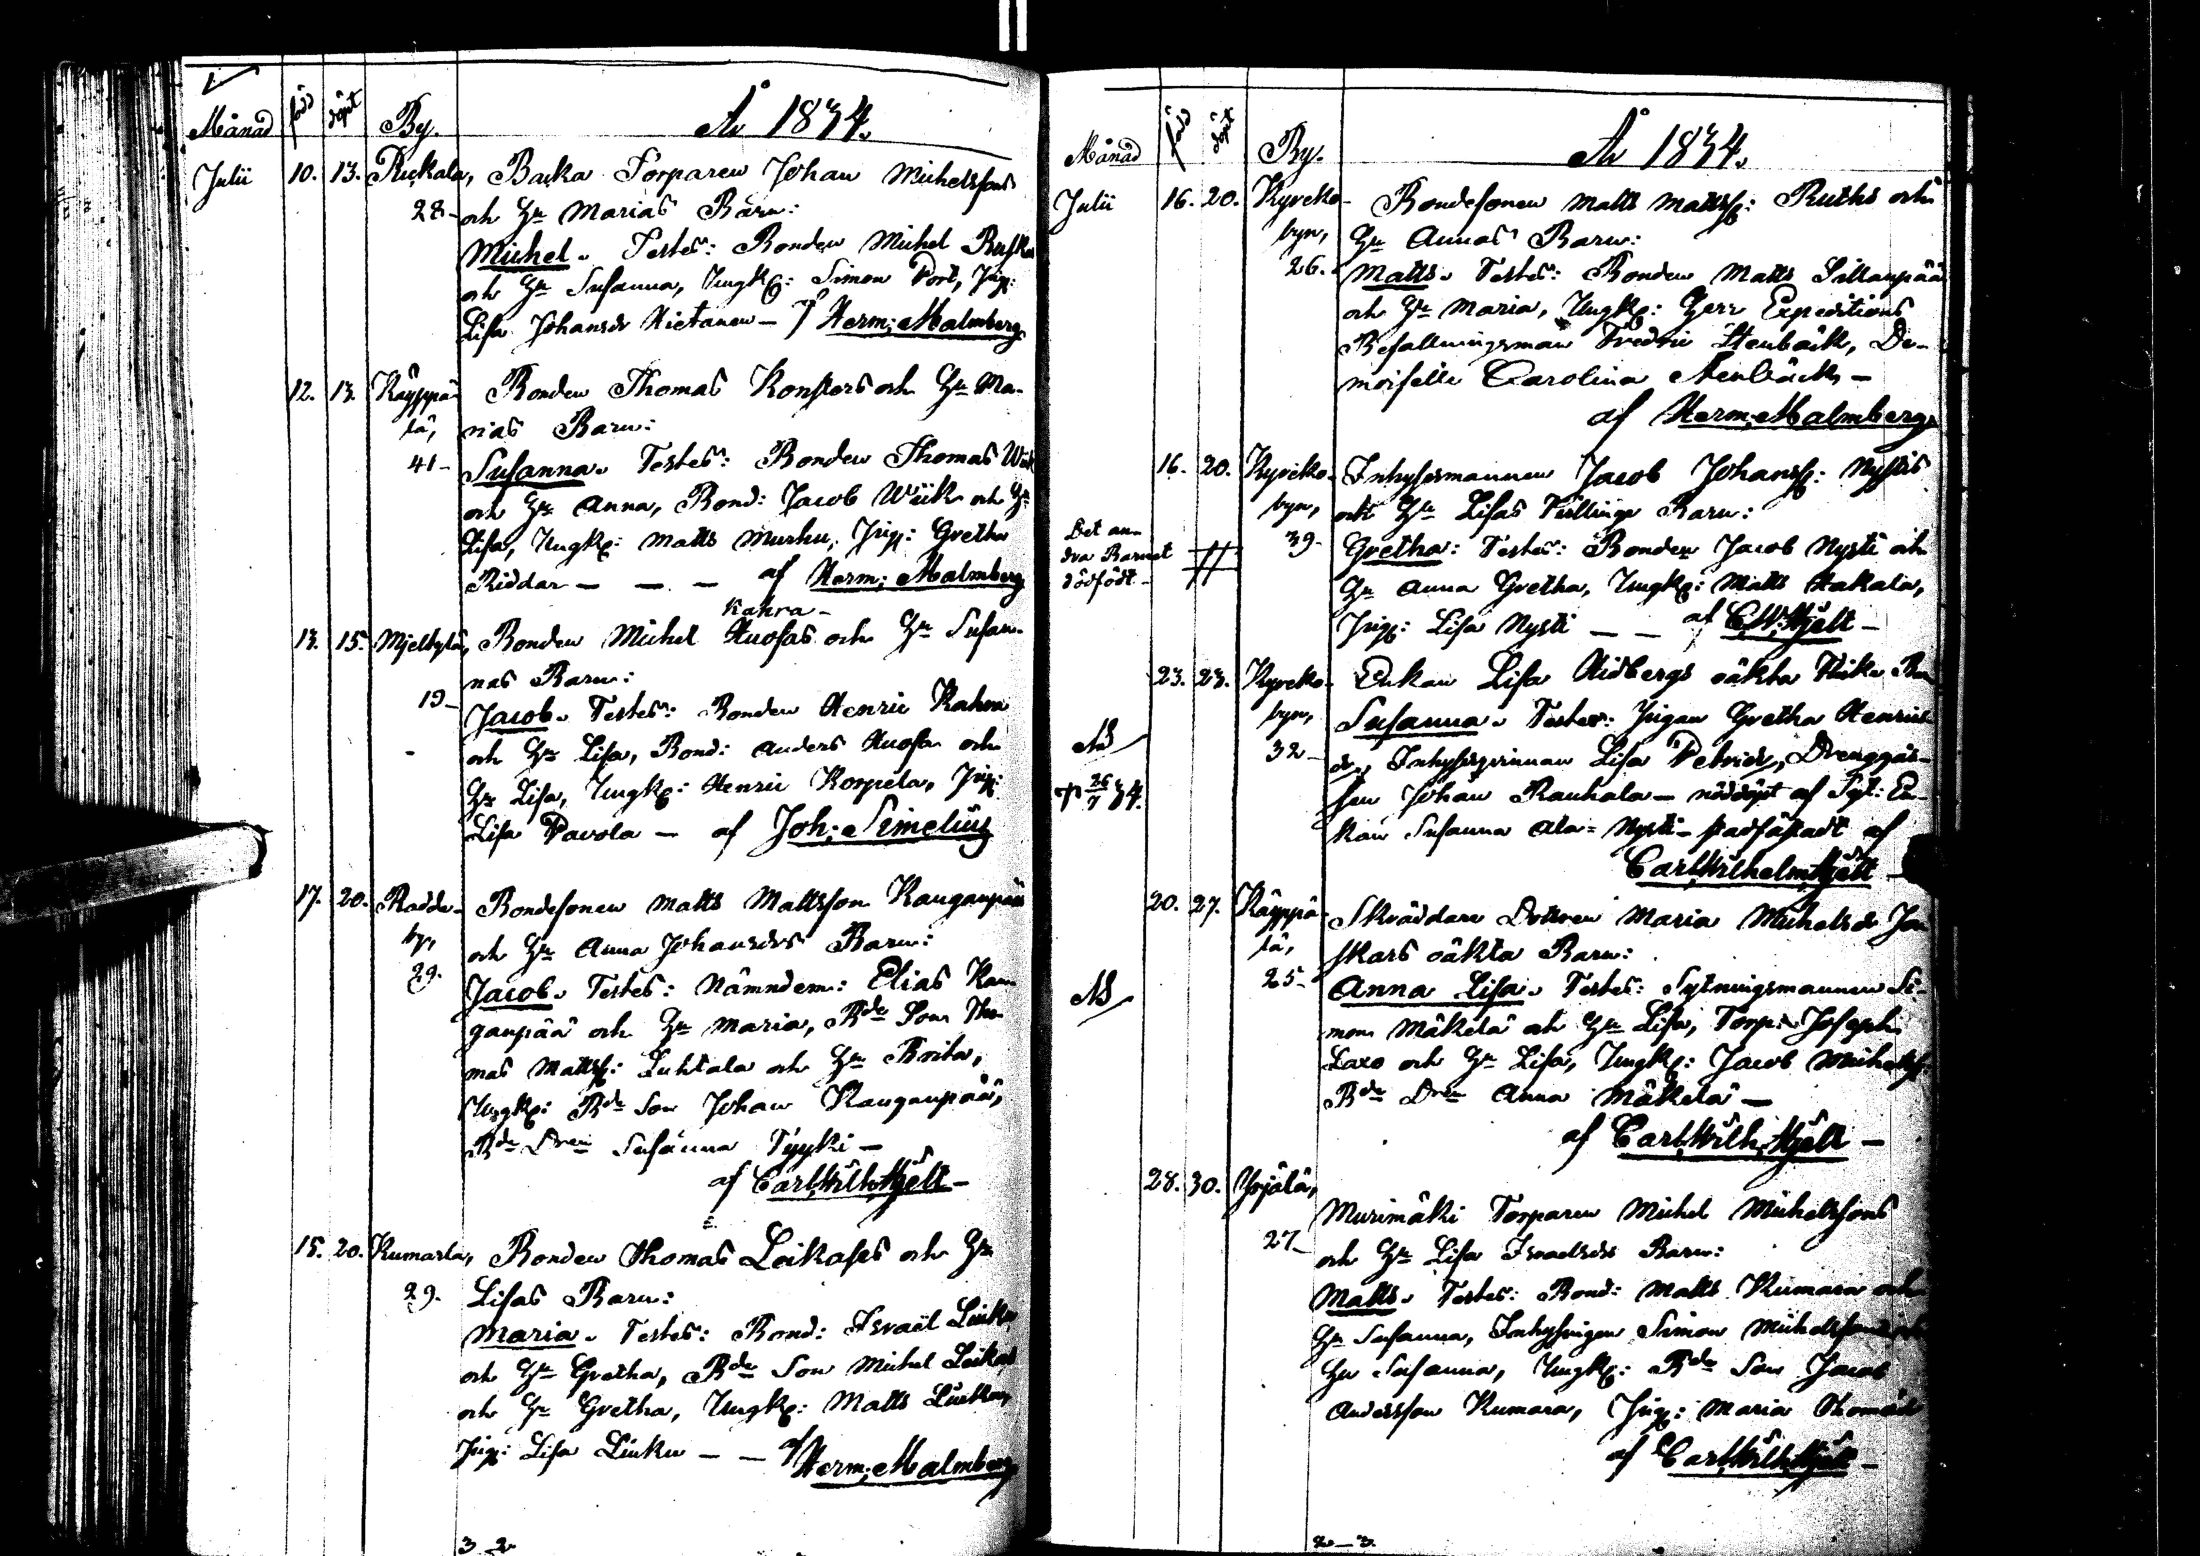 Månad född döpt By. År 1834.
Julii 10. 13. Ruckala, Backa Torparen Johan Michelssons
28- och Hu Marias Barn:
Michel. Testes: Bonden Michel
och Hu Susanna, Ungk: Simon Port, Pig:
Lisa Johansdr Hietanen - af Herm: Malmberg
12. 13. Käyppä- Bonden Thomas Konsters och Hu Ma-
lä, rias Barn:
41- Susanna. Testes: Bonden Thomas Wiik
och Hu Anna, Bond: Jacob Wiik och Hu
Lisa, Ungk: Matts Murhu, Pig: Gretha
Riddar - - - af Herm: Malmberg
Kahra -
13. 15. Mjelbylä, Bonden Michel Huosas och Hu Susan-
nas Barn:
19- Jacob. Testes: Bonden Henric Kahra
och Hu Lisa, Bond: Anders Huosa och
Hu Lisa, Ungk: Henric Korpela, Pig:
Lisa Pavola - af Joh: Simelius
17. 20. Radde- Bondesonen Matts Mattsson Kanganpää
by, och Hu Anna Johansdrs Barn:
29. Jacob. Testes: Nämndem: Elias Kan-
ganpää och Hu Maria, Bde Son Tho-
mas Mattss: Luhtala och Hu Brita,
Ungk: Bde Son Johan Kanganpää,
Bde Dren Susanna Tyyki -
af Carl Wilh: Hjelt -
15. 20. Kumarla, Bonden Thomas Leikases och Hu
29. Lisas Barn:
Maria. Testes: Bond: Israël Linku
och Hu Gretha, Bde Son Michel Leikas
och Hu Gretha, Ungk: Matts Linku,
Pig: Lisa Linku - - af Herm: Malmberg
3-2
Månad född döpt By. År 1834.
Julii 16. 20. Kyrcko- Bondesonen Matts Mattss: Ruths och
byn, Hu Annas Barn:
26. Matts. Testes: Bonden Matts Sillanpää
och Hu Maria, Ungk: Herr Expeditions
Befallningsman Fredric Stenbäck, De-
moiselle Carolina Stenbäck -
af Herm: Malmberg
16. 20. Kyrcko- Inhysesmannen Jacob Johanss: Nystis
byn, och Hu Lisas Tvillinge Barn:
Det an-
dra Barnet
dödfödt -
39- Gretha: Testes: Bonden Jacob Nysti och
Hu Anna Gretha, Ungk: Matts Hakala,
Pig: Lisa Nysti - - af C.W. Hjelt -
23. 23. Kyrcko- Enkan Lisa Hidbergs oäkta Flicke Barn
byn, Susanna. Testes: Pigan Gretha Henrics-
NB
32- dr, Inhysespigan Lisa Petridr, Drenggås-
† 26/7 34. sen Johan Rauhala - nöddöpt af Syt: En-
kan Susanna Ala-Nysti - stadfästadt af
Carl Wilhelm Hjelt -
20. 27. Käyppä- Skräddare Dottren Maria Michelsdr Jon
lä, skars oäkta Barn:
25- Anna Lisa. Testes: Sytningsmannen Si-
NB
mon Mäkelä och Hu Lisa, Torp: Joseph
Laxo och Hu Lisa, Ungk: Jacob Michelss:
Bde Dren Anna Mäkelä -
af Carl Wilh: Hjelt -
28. 30. Yrjälä,
Murimäki Torparen Michel Michelssons
27- och Hu Lisa Israelsdrs Barn:
Matts. Testes: Bond: Matts Kumara och
Hu Susanna, Simon Michelsson och
Hu Susanna, Ungk: Bde Son Jacob
Andersson Kumara, Pig: Maria Thomasdr
af Carl Wilh: Hjelt -
2-3